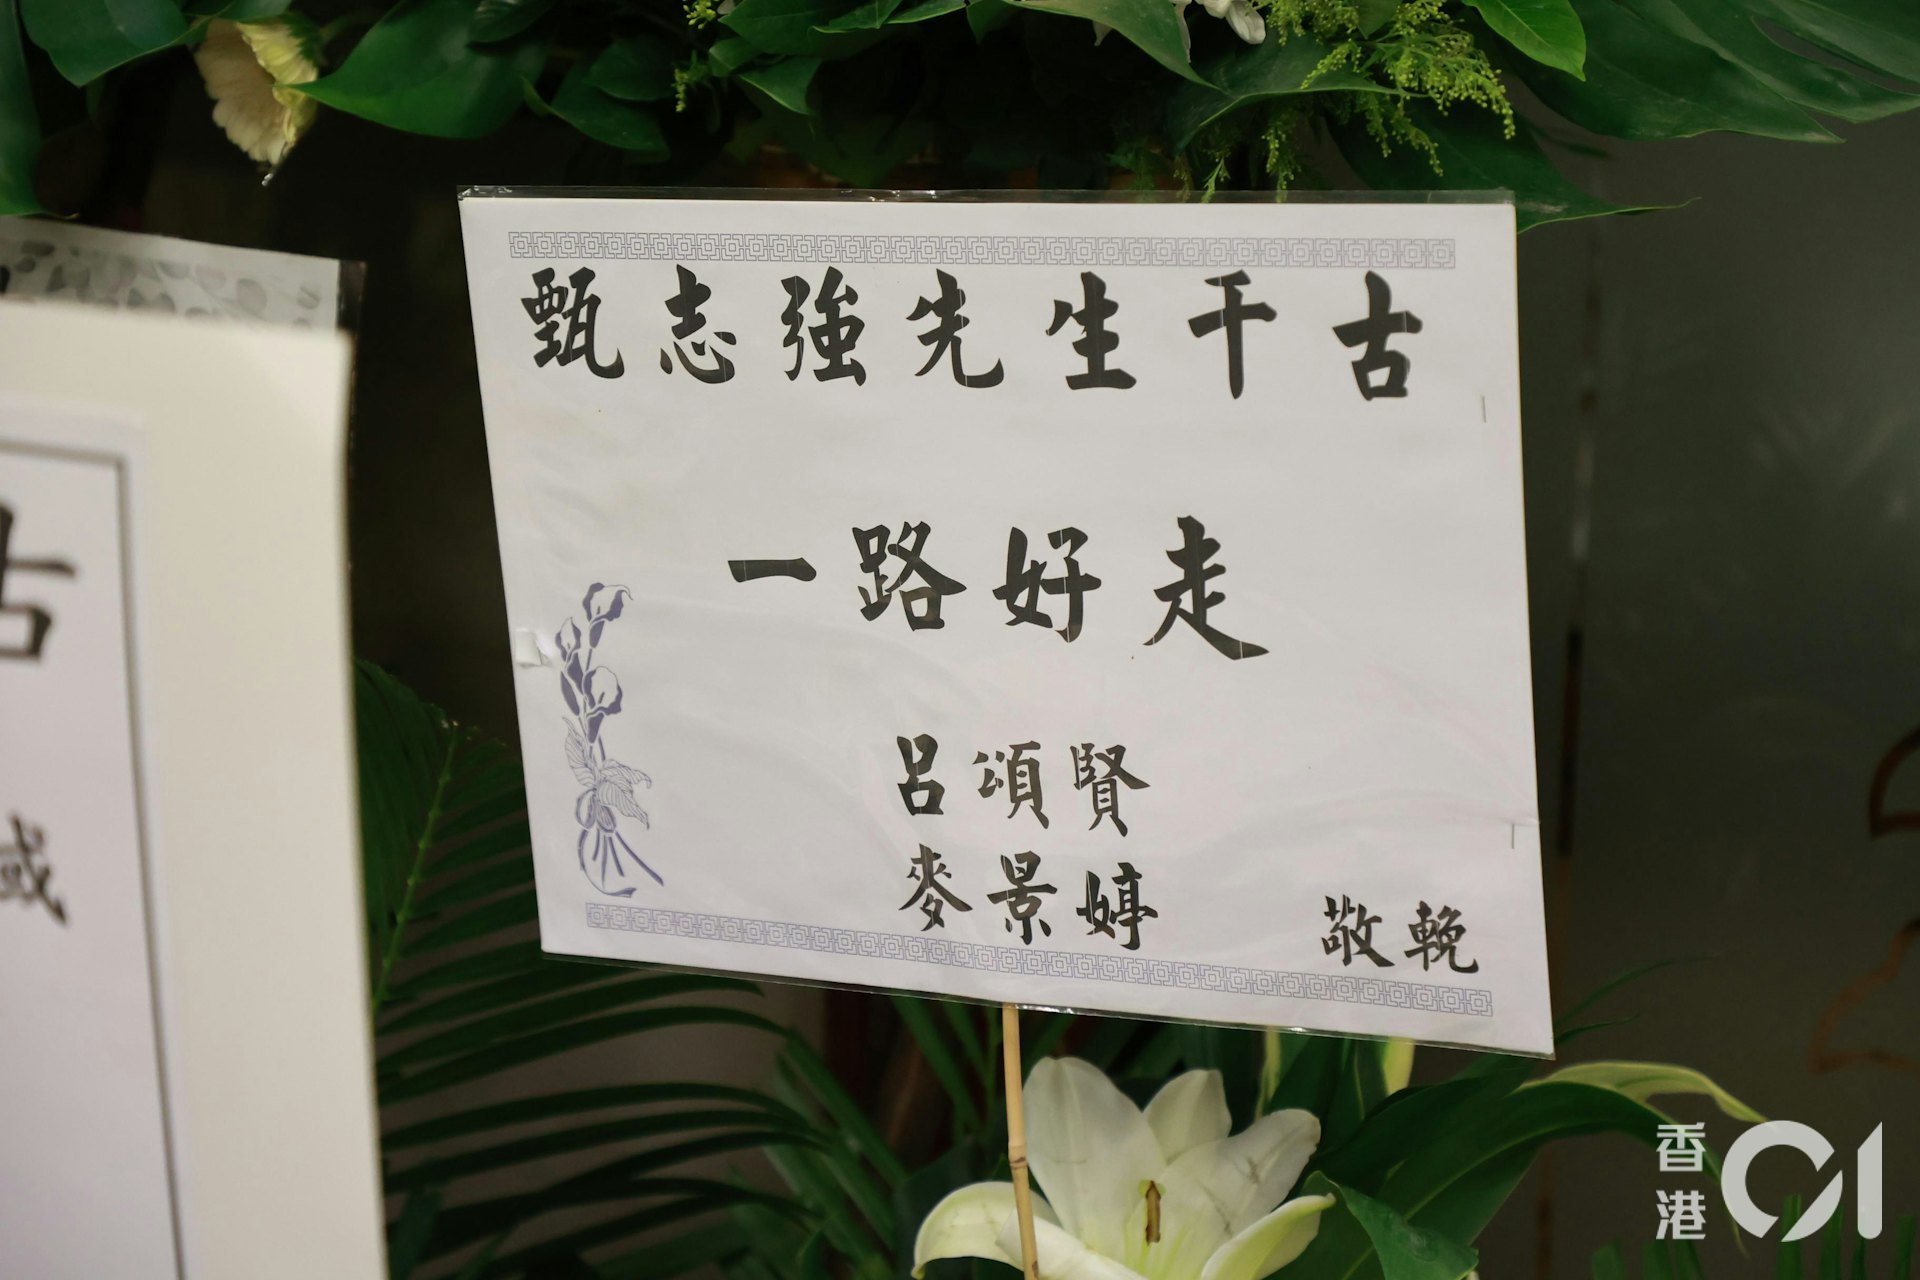 甄志強先生千古
一路好走
呂頌賢
麥景婷
敬輓
古
香港01